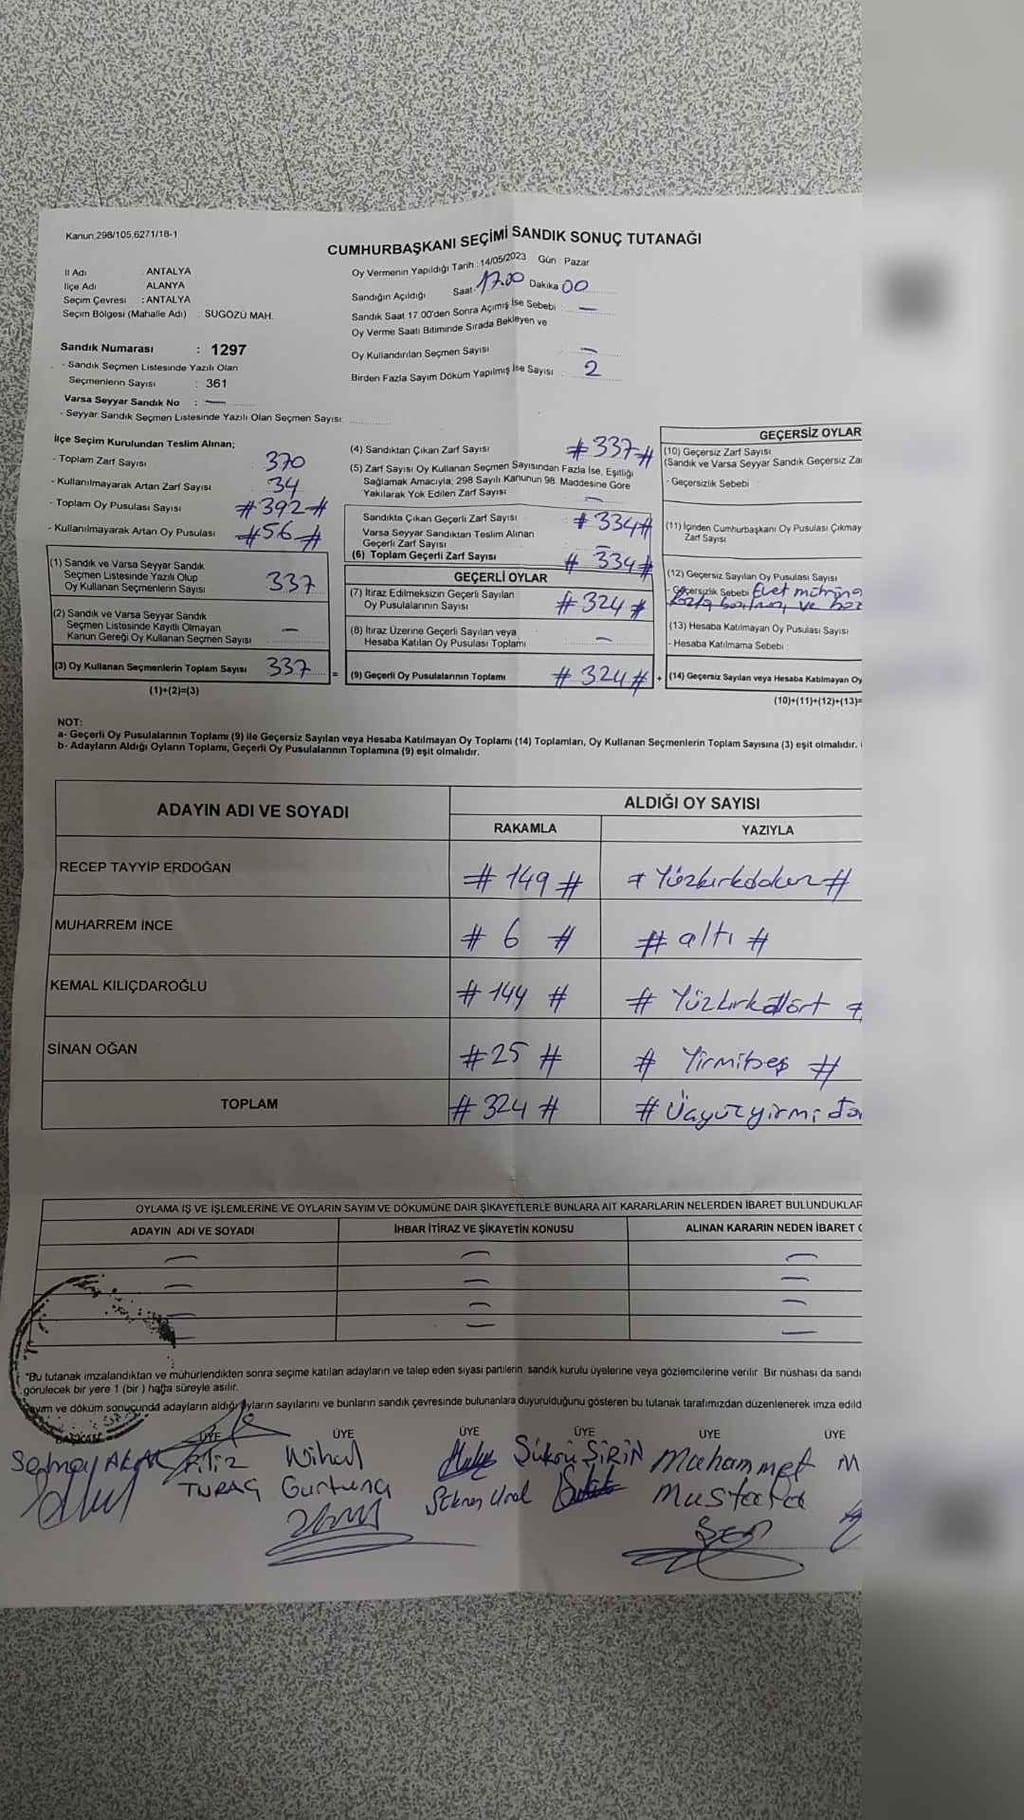 Kanun 298/105,6271/18-1
CUMHURBAŞKANI SEÇİMİ SANDIK SONUÇ TUTANAĞI
İl Adı : ANTALYA
İlçe Adı : ALANYA
Seçim Çevresi : ANTALYA
Seçim Bölgesi (Mahalle Adı) : SUGÖZÜ MAH.
Oy Vermenin Yapıldığı Tarih : 14/05/2023 Gün : Pazar
Sandığın Açıldığı Saat : 17.00 Dakika 00
Sandık Saat 17.00'den Sonra Açımış İse Sebebi : —
Oy Verme Saati Bitiminde Sırada Bekleyen ve
Oy Kullandırılan Seçmen Sayısı —
Birden Fazla Sayım Döküm Yapılmış İse Sayısı : 2
Sandık Numarası : 1297
- Sandık Seçmen Listesinde Yazılı Olan
Seçmenlerin Sayısı : 361
Varsa Seyyar Sandık No : —
- Seyyar Sandık Seçmen Listesinde Yazılı Olan Seçmen Sayısı:
İlçe Seçim Kurulundan Teslim Alınan;
- Toplam Zarf Sayısı 370
- Kullanılmayarak Artan Zarf Sayısı 34
- Toplam Oy Pusulası Sayısı #392#
- Kullanılmayarak Artan Oy Pusulası #56#
(1) Sandık ve Varsa Seyyar Sandık
Seçmen Listesinde Yazılı Olup
Oy Kullanan Seçmenlerin Sayısı 337
(2) Sandık ve Varsa Seyyar Sandık
Seçmen Listesinde Kayıtlı Olmayan
Kanun Gereği Oy Kullanan Seçmen Sayısı —
(3) Oy Kullanan Seçmenlerin Toplam Sayısı 337 =
(1)+(2)=(3)
(4) Sandıktan Çıkan Zarf Sayısı #337#
(5) Zarf Sayısı Oy Kullanan Seçmen Sayısından Fazla İse, Eşitliği
Sağlamak Amacıyla, 298 Sayılı Kanunun 98. Maddesine Göre
Yakılarak Yok Edilen Zarf Sayısı —
Sandıkta Çıkan Geçerli Zarf Sayısı #334#
Varsa Seyyar Sandıktan Teslim Alınan
Geçerli Zarf Sayısı
(6) Toplam Geçerli Zarf Sayısı #334#
GEÇERLİ OYLAR
(7) İtiraz Edilmeksizin Geçerli Sayılan
Oy Pusulalarının Sayısı #324#
(8) İtiraz Üzerine Geçerli Sayılan veya
Hesaba Katılan Oy Pusulası Toplamı —
(9) Geçerli Oy Pusulalarının Toplamı #324# +
GEÇERSİZ OYLAR
(10) Geçersiz Zarf Sayısı
(Sandık ve Varsa Seyyar Sandık Geçersiz Za
- Geçersizlik Sebebi :
(11) İçinden Cumhurbaşkanı Oy Pusulası Çıkmay
Zarf Sayısı
(12) Geçersiz Sayılan Oy Pusulası Sayısı
- Geçersizlik Sebebi Evet
ve
(13) Hesaba Katılmayan Oy Pusulası Sayısı
- Hesaba Katılmama Sebebi :
(14) Geçersiz Sayılan veya Hesaba Katılmayan Oy
(10)+(11)+(12)+(13)=
NOT:
a- Geçerli Oy Pusulalarının Toplamı (9) ile Geçersiz Sayılan veya Hesaba Katılmayan Oy Toplamı (14) Toplamları, Oy Kullanan Seçmenlerin Toplam Sayısına (3) eşit olmalıdır.
b- Adayların Aldığı Oyların Toplamı, Geçerli Oy Pusulalarının Toplamına (9) eşit olmalıdır.
ADAYIN ADI VE SOYADI ALDIĞI OY SAYISI
RAKAMLA YAZIYLA
RECEP TAYYİP ERDOĞAN #149#
MUHARREM İNCE #6# #altı#
KEMAL KILIÇDAROĞLU #144# #Yüzkırkdört#
SİNAN OĞAN #25# #Yirmibeş#
TOPLAM #324# #Üçyüzyirmi
OYLAMA İŞ VE İŞLEMLERİNE VE OYLARIN SAYIM VE DÖKÜMÜNE DAİR ŞİKAYETLERLE BUNLARA AİT KARARLARIN NELERDEN İBARET BULUNDUKLAR
ADAYIN ADI VE SOYADI İHBAR İTİRAZ VE ŞİKAYETİN KONUSU ALINAN KARARIN NEDEN İBARET O
— — —
— — —
— — —
— — —
*Bu tutanak imzalandıktan ve mühürlendikten sonra seçime katılan adayların ve talep eden siyasi partilerin sandık kurulu üyelerine veya gözlemcilerine verilir. Bir nüshası da sandı
görülecek bir yere 1 (bir ) hafta süreyle asılır.
ve döküm sonucunda adayların aldığı oyların sayılarını ve bunların sandık çevresinde bulunanlara duyurulduğunu gösteren bu tutanak tarafımızdan düzenlenerek imza edild
BAŞKAN ÜYE ÜYE ÜYE ÜYE ÜYE ÜYE
Filiz Nihal Şükrü ŞİRİN Muhammet M
TURAÇ Mustafa